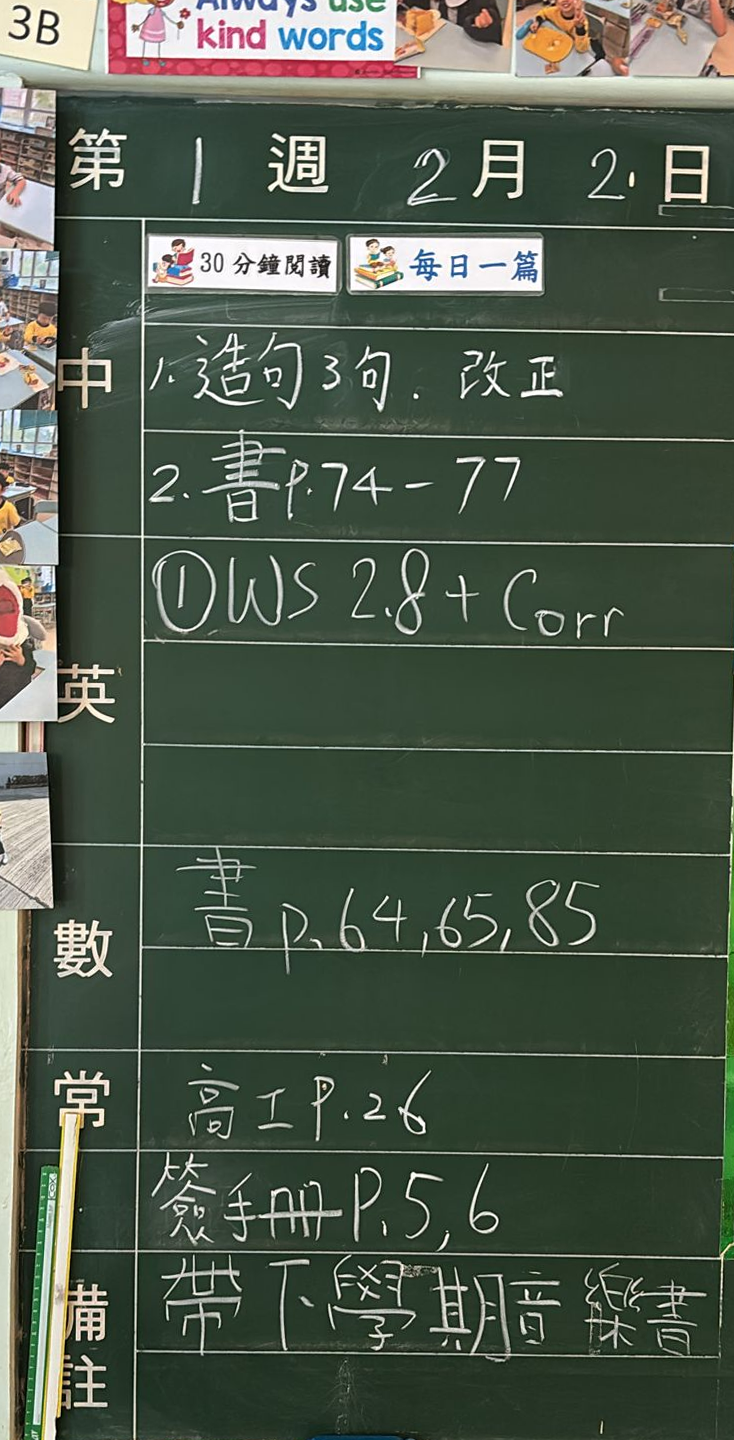 3B
Always use
kind words
第 1 週 2 月 2. 日
30 分鐘閱讀 每日一篇
中 1. 造句3句. 改正
2. 書p.74-77
英 ①WS 2.8+Corr
數 書 p.64,65,85
常 高工P.26
簽手冊P.5,6
備註 帶下學期音樂書